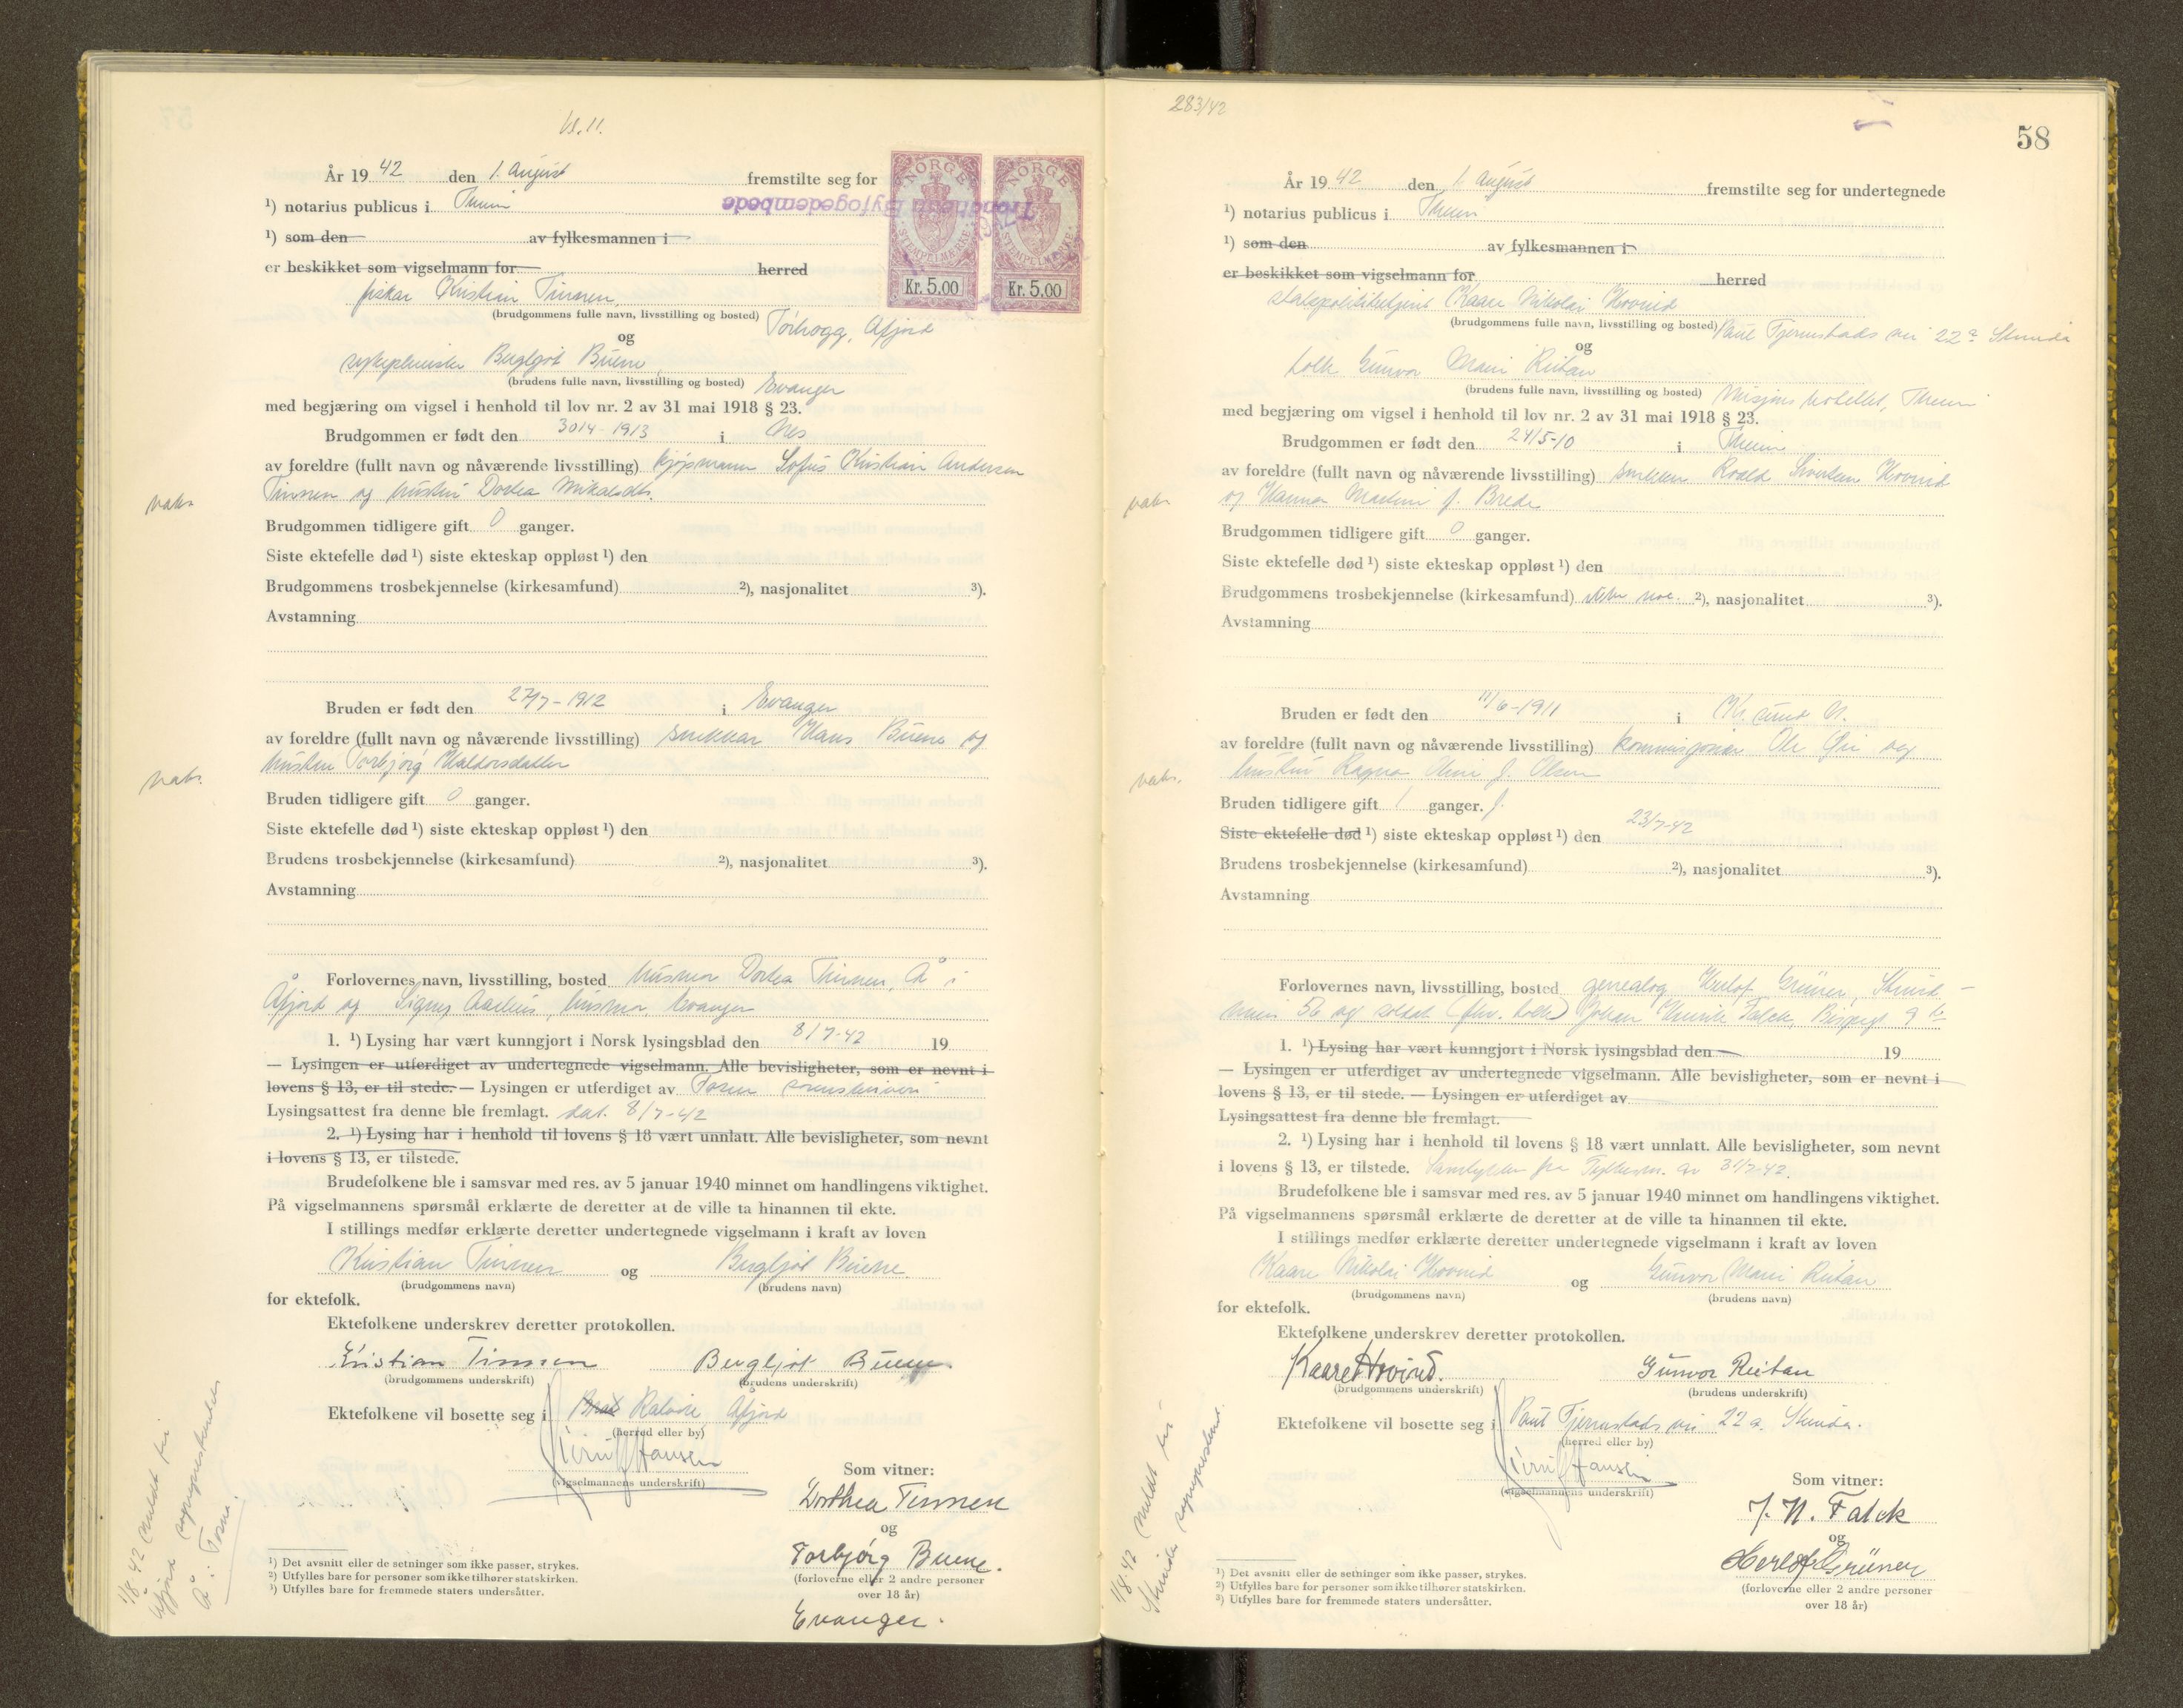 kl. 11.
År 1942 den 1. August fremstilte seg for
¹) notarius publicus i Thrim
¹) som den av fylkesmannen i
er beskikket som vigselmann for herred
NORGE STEMPELMERKE Kr. 5.00
NORGE STEMPELMERKE Kr. 5.00
Trondheim Byfogedembede
fisker Kristian Tinnen,
(brudgommens fulle navn, livsstilling og bosted) Tørhogg, Åfjord
og
Bergljot Buene
(brudens fulle navn, livsstilling og bosted) Evanger
med begjæring om vigsel i henhold til lov nr. 2 av 31 mai 1918 § 23.
Brudgommen er født den 30/4-1913 i Nes
av foreldre (fullt navn og nåværende livsstilling) kjøpmann Sofus Kristian Andersen
Tinnen og hustru Dortea Mikalsdtr.
vaks.
Brudgommen tidligere gift 0 ganger.
Siste ektefelle død ¹) siste ekteskap oppløst ¹) den
Brudgommens trosbekjennelse (kirkesamfund) ²), nasjonalitet ³).
Avstamning
Bruden er født den 27/7-1912 i Evanger
av foreldre (fullt navn og nåværende livsstilling) snekker Hans Buene og
hustru Torbjørg Haldorsdatter
vaks.
Bruden tidligere gift 0 ganger.
Siste ektefelle død ¹) siste ekteskap oppløst ¹) den
Brudens trosbekjennelse (kirkesamfund) ²), nasjonalitet ³).
Avstamning
Forlovernes navn, livsstilling, bosted husmor Dortea Tinnen, Å i
Åfjord og Signy husmor Evanger
1. ¹) Lysing har vært kunngjort i Norsk lysingsblad den 8/7-42 19
— Lysingen er utferdiget av undertegnede vigselmann. Alle bevisligheter, som er nevnt i
lovens § 13, er til stede. — Lysingen er utferdiget av Fosen sorenskriveri
Lysingsattest fra denne ble fremlagt. dat. 8/7-42
2. ¹) Lysing har i henhold til lovens § 18 vært unnlatt. Alle bevisligheter, som nevnt
i lovens § 13, er tilstede.
Brudefolkene ble i samsvar med res. av 5 januar 1940 minnet om handlingens viktighet.
På vigselmannens spørsmål erklærte de deretter at de ville ta hinannen til ekte.
I stillings medfør erklærte deretter undertegnede vigselmann i kraft av loven
Kristian Tinnen og Bergljot Buene.
(brudgommens navn) (brudens navn)
for ektefolk.
Ektefolkene underskrev deretter protokollen.
Kristian Tinnen Bergljot Buene.
(brudgommens underskrift) (brudens underskrift)
Ektefolkene vil bosette seg i Åfjord
(herred eller by)
Hansen
(vigselmannens underskrift)
Som vitner:
Dorthea Tinnen
og
Torbjørg Buene.
(forloverne eller 2 andre personer
over 18 år)
Evanger.
1/8 42 meldt til
Åfjord sogneprestembede
Å: Fosna.
¹) Det avsnitt eller de setninger som ikke passer, strykes.
²) Utfylles bare for personer som ikke tilhører statskirken.
³) Utfylles bare for fremmede staters undersåtter.
283/42
58
År 1942 den 1. August fremstilte seg for undertegnede
¹) notarius publicus i Thrim
¹) som den av fylkesmannen i
er beskikket som vigselmann for herred
statspolitibetjent Kaare Nikolai Hovind
(brudgommens fulle navn, livsstilling og bosted) Paul Fjermstads vei 22a Strinda
og
tolk Gunvor Marie Reitan
(brudens fulle navn, livsstilling og bosted) Misjonshotellet, Thrim
med begjæring om vigsel i henhold til lov nr. 2 av 31 mai 1918 § 23.
Brudgommen er født den 24/5-10 i Thrim
av foreldre (fullt navn og nåværende livsstilling) snekker Roald Hovind
og Hanna Martine f. Brede
vaks.
Brudgommen tidligere gift 0 ganger.
Siste ektefelle død ¹) siste ekteskap oppløst ¹) den
Brudgommens trosbekjennelse (kirkesamfund) ²), nasjonalitet ³).
Avstamning
Bruden er født den 11/6-1911 i Kr.sund N.
av foreldre (fullt navn og nåværende livsstilling) kommisjonær Ole og
hustru Ragna f. Olsen
vaks.
Bruden tidligere gift 1 ganger. f.
Siste ektefelle død ¹) siste ekteskap oppløst ¹) den 23/7-42
Brudens trosbekjennelse (kirkesamfund) ²), nasjonalitet ³).
Avstamning
Forlovernes navn, livsstilling, bosted genealog Herlof Grüner, Strind-
veien 56 og soldat (fhv. tolk) Johan Henrik Falck, Bispegt 9
1. ¹) Lysing har vært kunngjort i Norsk lysingsblad den 19
— Lysingen er utferdiget av undertegnede vigselmann. Alle bevisligheter, som er nevnt i
lovens § 13, er til stede. — Lysingen er utferdiget av
Lysingsattest fra denne ble fremlagt.
2. ¹) Lysing har i henhold til lovens § 18 vært unnlatt. Alle bevisligheter, som nevnt
i lovens § 13, er tilstede. Samtykke fra Fylkesm. av 31/7-42.
Brudefolkene ble i samsvar med res. av 5 januar 1940 minnet om handlingens viktighet.
På vigselmannens spørsmål erklærte de deretter at de ville ta hinannen til ekte.
I stillings medfør erklærte deretter undertegnede vigselmann i kraft av loven
Kaare Nikolai Hovind og Gunvor Marie Reitan
(brudgommens navn) (brudens navn)
for ektefolk.
Ektefolkene underskrev deretter protokollen.
Kaare Hovind. Gunvor Reitan
(brudgommens underskrift) (brudens underskrift)
Ektefolkene vil bosette seg i Paul Fjermstads vei 22 a. Strinda.
(herred eller by)
Hansen
(vigselmannens underskrift)
Som vitner:
J. H. Falck
og
Herlof Grüner
(forloverne eller 2 andre personer
over 18 år)
1/8 42 meldt til
Strinda sogneprestemb.
¹) Det avsnitt eller de setninger som ikke passer, strykes.
²) Utfylles bare for personer som ikke tilhører statskirken.
³) Utfylles bare for fremmede staters undersåtter.